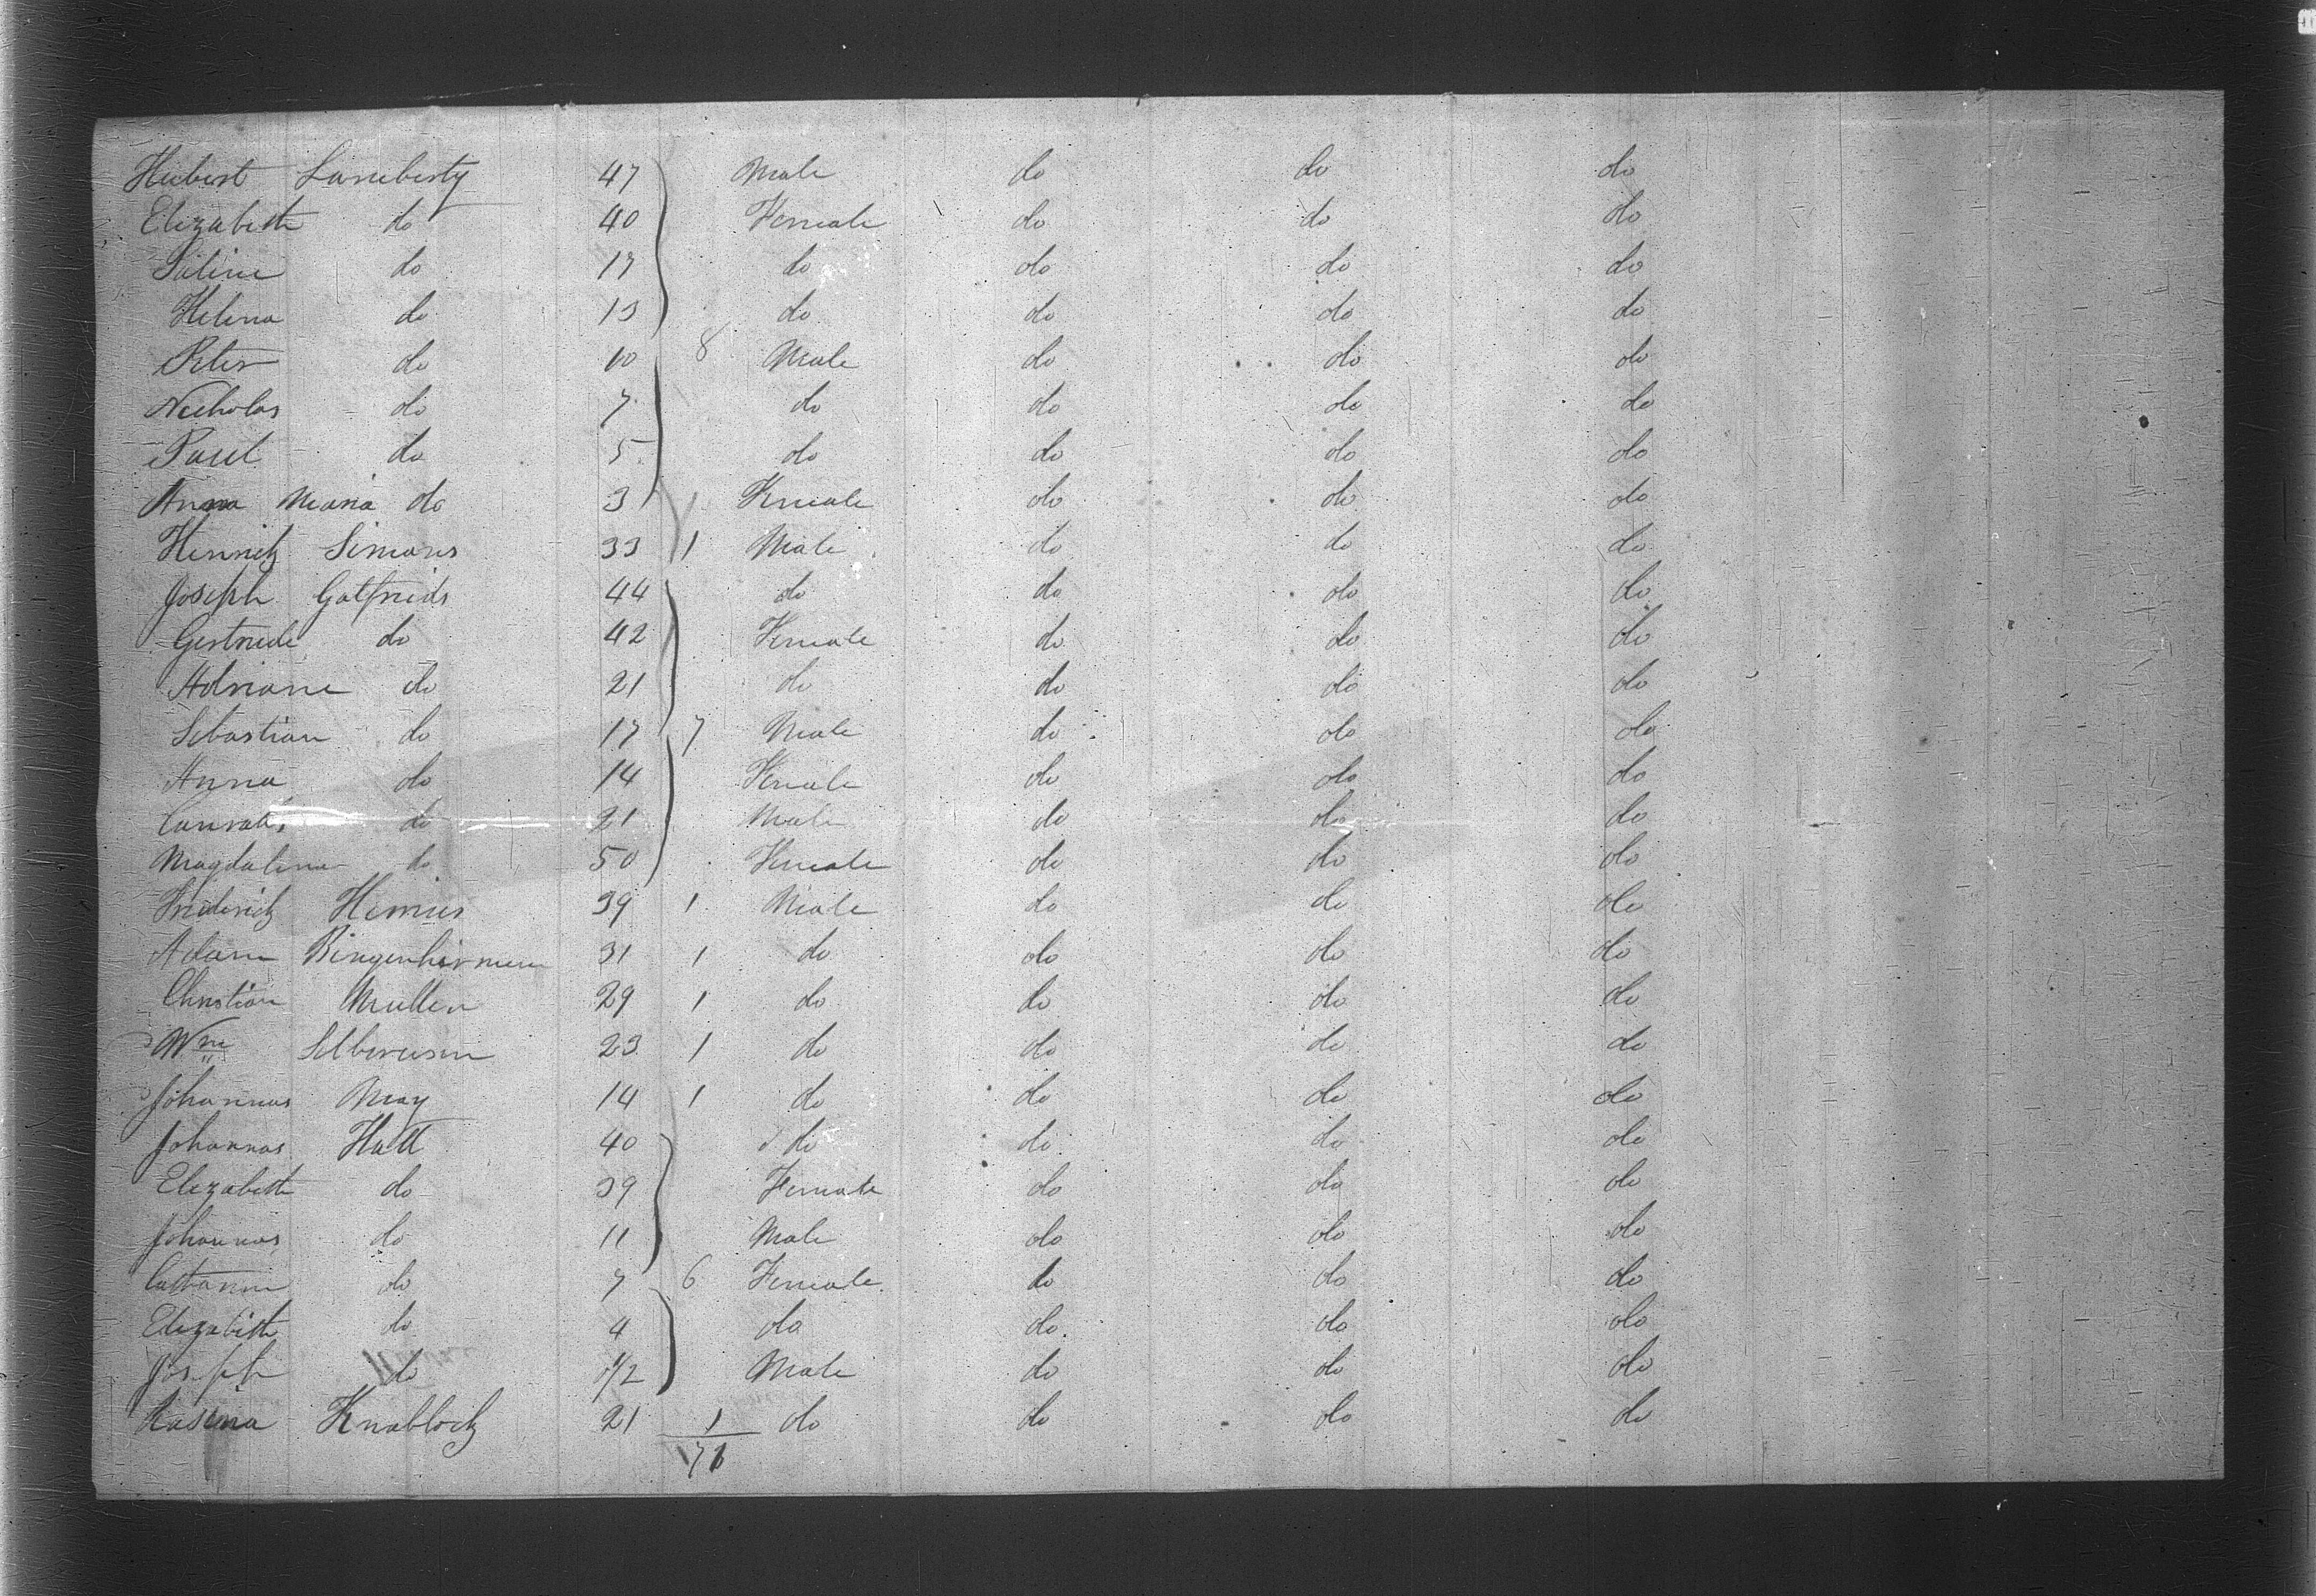 Hubert Lamberty 47 Male do do do
Elizabeth do 40 Female do do do
do 17 do do do do
Helena do 13 do do do do
Peter do 10 8 Male do do do
Nicholas do 7 do do do do
Paul do 5 do do do do
Anna Maria do 3 1 Female do do do
Henrich Simons 33 1 Male do do do
Joseph Gotfrieds 44 do do do do
Gertrude do 42 Female do do do
Adriane do 21 do do do do
Sebastian do 17 7 Male do do do
Anna do 14 Female do do do
do 21 Male do do do
Magdalena do 50 Female do do do
Friderich 39 1 Male do do do
Adam 31 1 do do do do
Christian Muller 29 1 do do do do
Wm 23 1 do do do do
Johannas May 14 1 do do do do
Johannas Hatt 40 do do do do
Elizabeth do 39 Female do do do
Johannas do 11 Male do do do
do 7 6 Female do do do
Elizabeth do 4 do do do do
Joseph do 1/2 Male do do do
Rasina Knabloch 21 1 do do do do